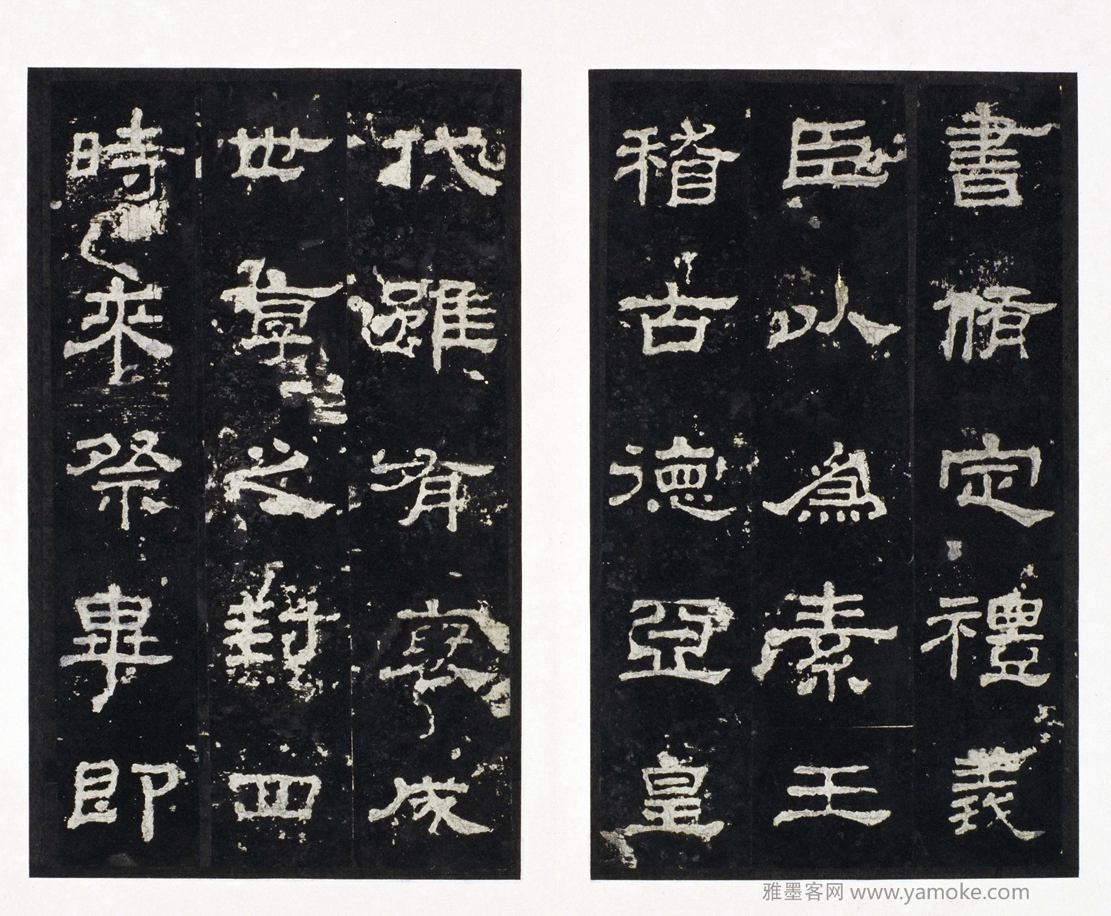 書脩定禮義
臣以爲素王
稽古德亞皇
代雖有褒成
世享之封四
時來祭畢即
雅墨客网 www.yamoke.com